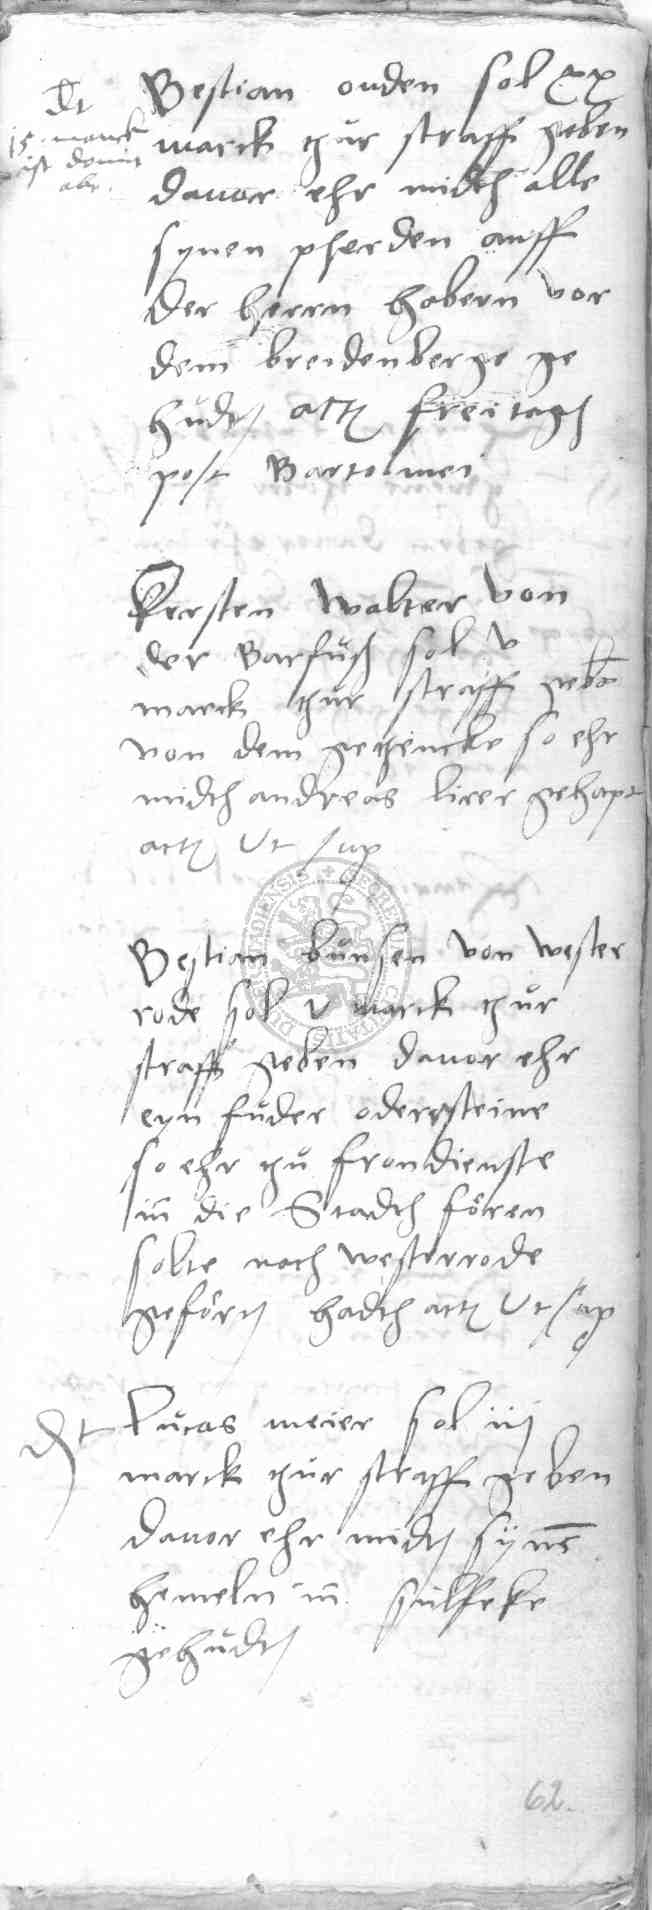 Dt
15 marck
ist domit
abe
Bestian ouden sol xx
marck thur straff geben
dauor ehr midth alle
synen pherden auff
der herrn habern vor
dem breidenberge ge
hudt act freitagh
post Bartolmei
Kersten Walter von
der Barfuß sol v
marck thur straff geb
von dem gethencke so ehr
midth andreas lirer gehapt
act Ut sup
Bestian bunsen von wester
rode sol v marck thur
straff geben dauor ehr
eyn fuder odersteine
so ehr thu frondienste
in die Stadth fören
solte noch westerrode
gefört hadth act Ut sup
Dt
Lucas meier sol iiij
marck thur straff geben
dauor ehr midt syns
hemeln in sulfeke
gehudt
62.